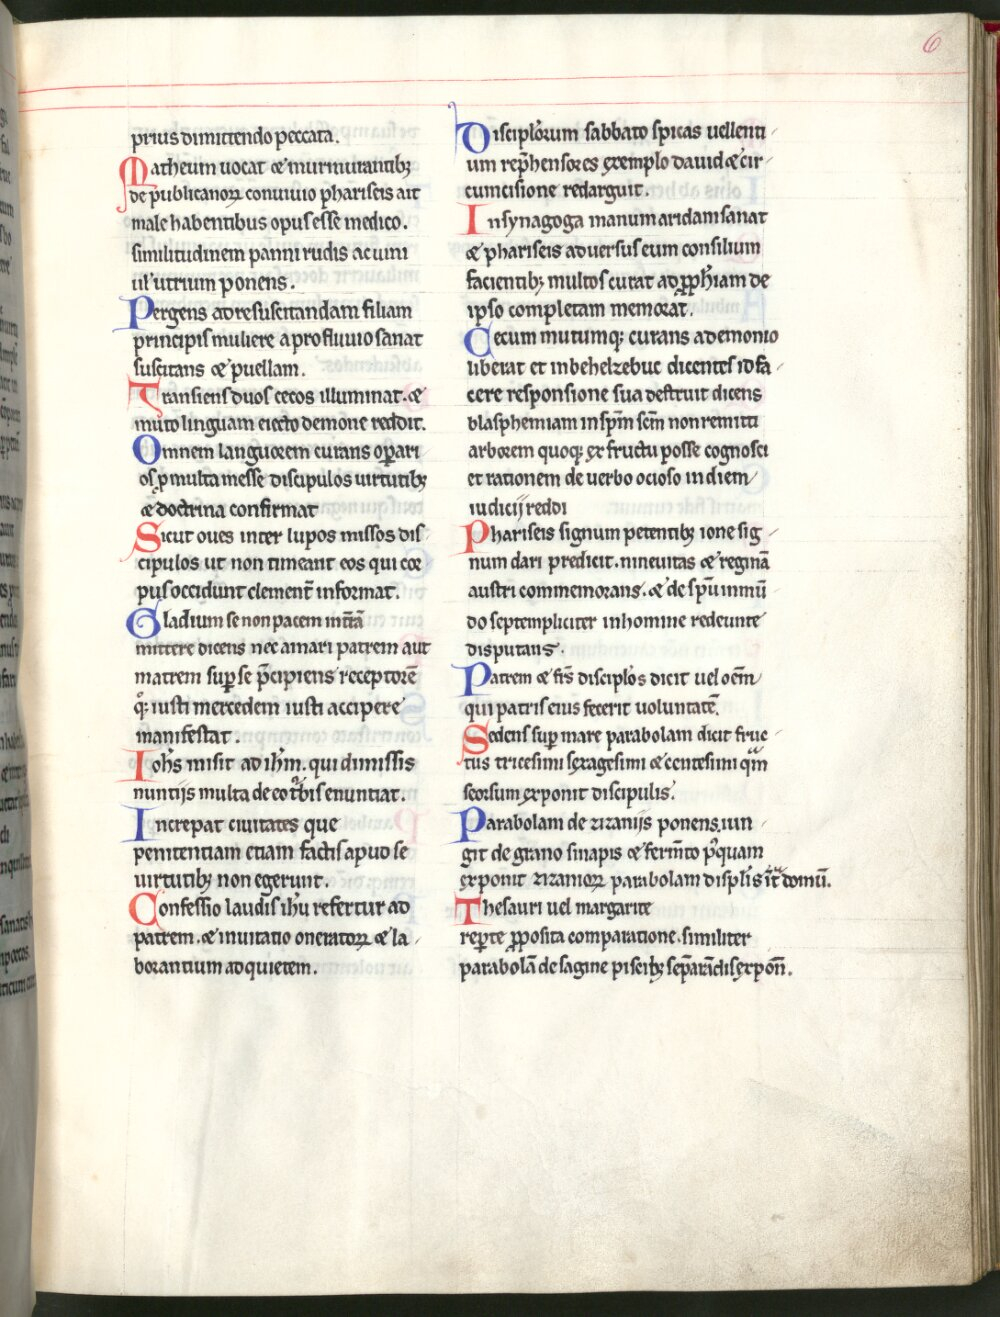 6
prius dimittendo peccata.
Matheum uocat & murmurantibꝫ
de publicanoꝝ conuiuio phariseis ait
male habentibus opus esse medico.
similitudinem panni rudis ac uini
ul' utrium ponens.
Pergens ad resuscitandam filiam
principis muliere a profluuio sanat
suscitans & puellam.
Transiens duos cecos illuminat. &
muto linguam eiecto demone reddit.
Omnem languorem curans oꝑari
os ꝑ multa messe discipulos uirtutibꝫ
& doctrina confirmat
Sicut oues inter lupos missos dis
cipulos ut non timeant eos qui cor
pus occidunt clement̄ informat.
Gladium se non pacem int̄rā
mittere dicens nec amari patrem aut
matrem suꝑ se p̄cipiens receptorē
q̄ iusti mercedem iusti accipere
manifestat.
Ioh̄s misit ad ih̄m. qui dimissis
nuntijs multa de eo t̄bis enuntiat.
Increpat ciuitates que
penitentiam etiam factis apud se
uirtutibꝫ non egerunt.
Confessio laudis ih̄u refertur ad
patrem. & inuitatio oneratoꝝ & la
borantium ad quietem.
Discipl'orum sabbato spicas uellenti
um rep̄hensores exemplo dauid & cir
cumcisione redarguit.
In synagoga manum aridam sanat
& phariseis aduersus eum consilium
facientibꝫ multos curat ad ꝓph̄iam de
ipso completam memorat.
Cecum mutumqꝫ curans a demonio
liberat et in behelzebuc dicentes id fa
cere responsione sua destruit dicens
blasphemiam in sp̄m sc̄m non remitti
arborem quoqꝫ ex fructu posse cognosci
et rationem de uerbo ocioso in diem
iudicij reddi
Phariseis signum petentibꝫ ione sig
num dari predicit. nineuitas & reginā
austri commemorans. & de sp̄u inmū
do septempliciter in homine redeunte
disputans.
Patrem & fr̄s discipl'os dicit uel om̄
qui patris eius fecerit uoluntatē.
Sedens suꝑ mare parabolam dicit fruc
tus tricesimi sexagesimi & centesimi qm̄
seorsum exponit discipulis.
Parabolam de zizanijs ponens. iun
git de grano sinapis & ferm̄to pꝰquam
exponit zizanioꝝ parabolam displ'is īt domū.
Thesauri uel margarite
rep̄te ꝓposita comparatione. similiter
parabolā de sagine piscibꝫ seꝑandis expon̄.